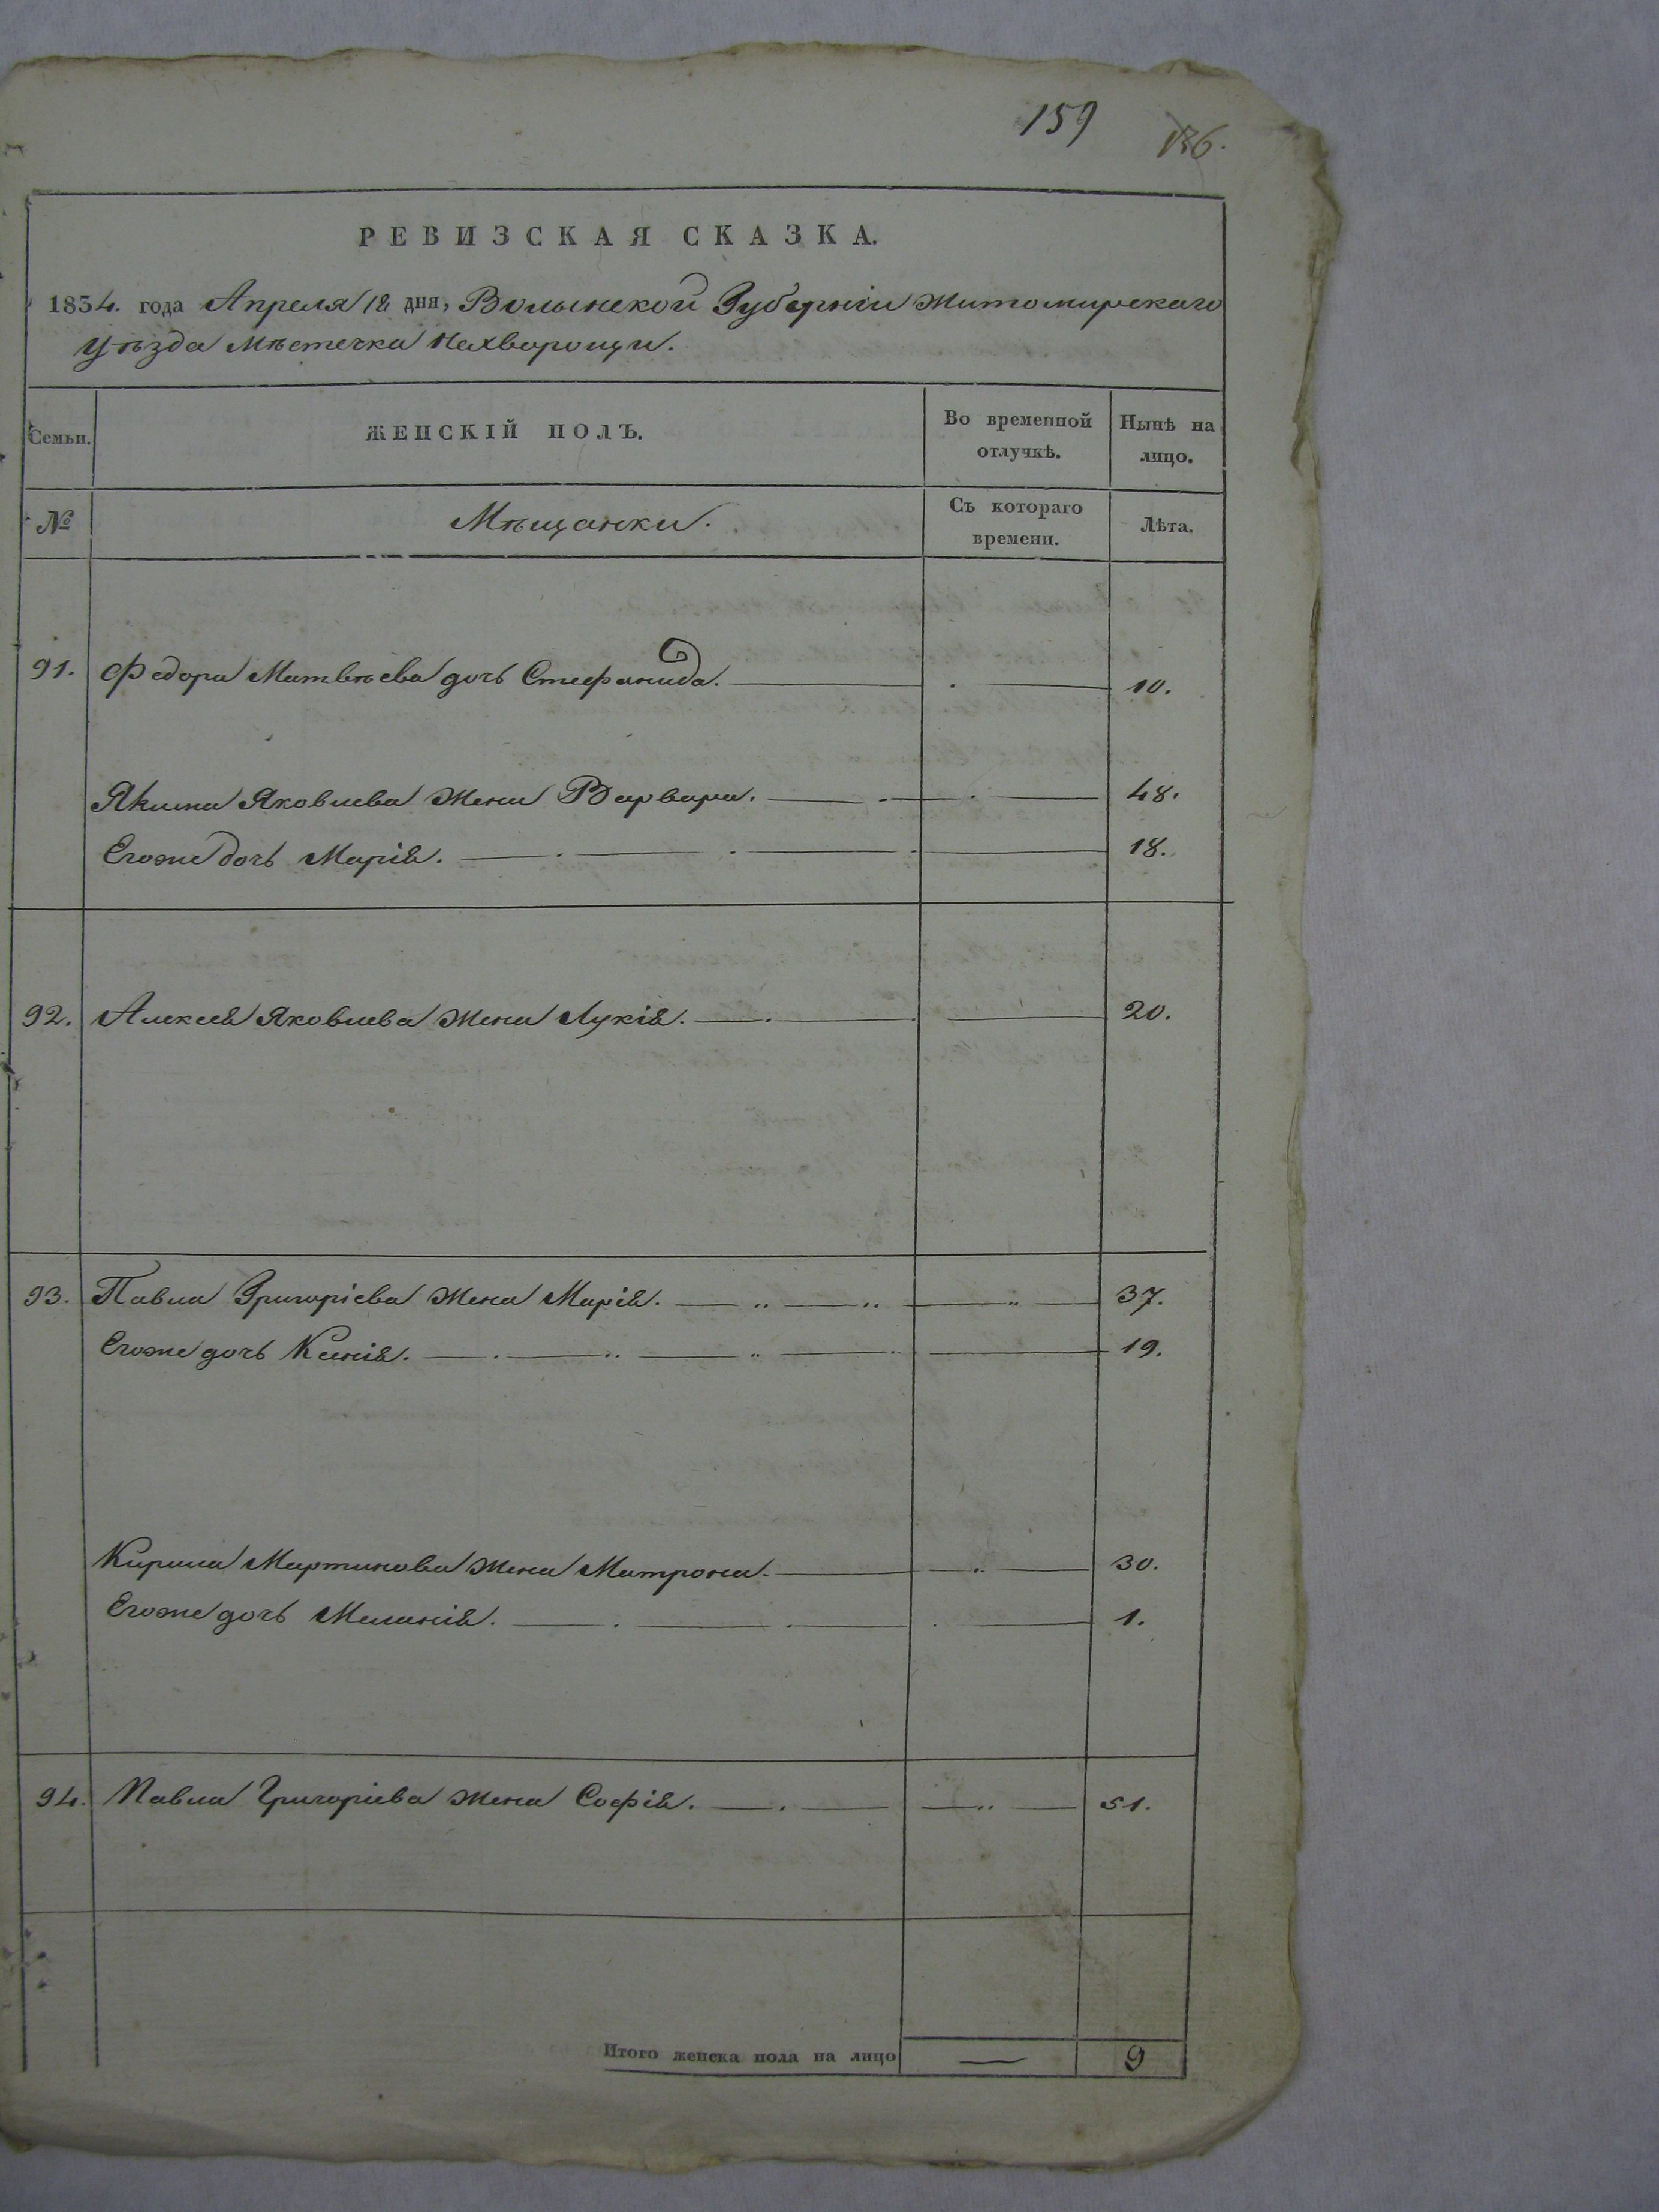 159
136.
РЕВИЗСКАЯ СКАЗКА.
1834. года Апреля 12 дня, Волынской Губерніи Житомирскаго
Уѣзда Мѣстечка Нехворощи.
Семьи. ЖЕНСКІЙ ПОЛЪ. Во временной отлучкѣ. Нынѣ на лицо.
№ Мѣщанки. Съ котораго времени. Лѣта.
91. Федора Матвѣева дочь Стефанида. 10.
Якима Яковлева жена Варвара. 48.
Егоже дочь Марія. 18.
92. Алексея Яковлева жена Лукія. 20.
93. Павла Григоріева жена Марія. 37.
Егоже дочь Ксенія. 19.
Кирила Мартинова жена Матрона. 30.
Егоже дочь Меланія. 1.
94. Павла Григоріева жена Софія. 51.
Итого женска пола на лицо — 9